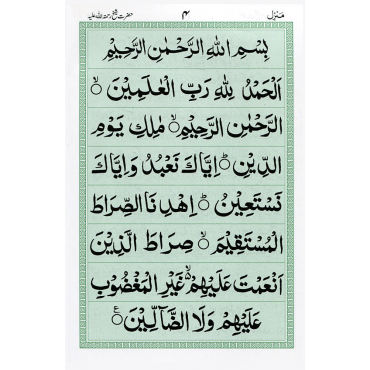 منزل ۴ حضرت شیخ رحمۃ اللہ علیہ
بِسْمِ اللهِ الرَّحْمٰنِ الرَّحِيْمِ
اَلْحَمْدُ لِلّٰهِ رَبِّ الْعٰلَمِيْنَ ۙ
الرَّحْمٰنِ الرَّحِيْمِ ۙ مٰلِكِ يَوْمِ
الدِّيْنِ ؕ اِيَّاكَ نَعْبُدُ وَاِيَّاكَ
نَسْتَعِيْنُ ؕ اِهْدِنَا الصِّرَاطَ
الْمُسْتَقِيْمَ ۙ صِرَاطَ الَّذِيْنَ
اَنْعَمْتَ عَلَيْهِمْ ۙ غَيْرِ الْمَغْضُوْبِ
عَلَيْهِمْ وَلَا الضَّآلِّيْنَ ۠